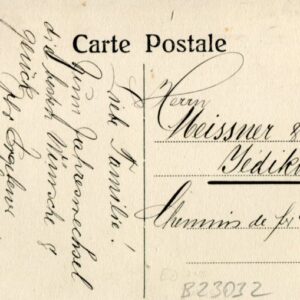 Carte Postale
nebst Familie!
Zum Jahreswechsel
die besten Wünsche &
Glück
Herrn
Meissner &
Yédik
Chemins de fe
B23032